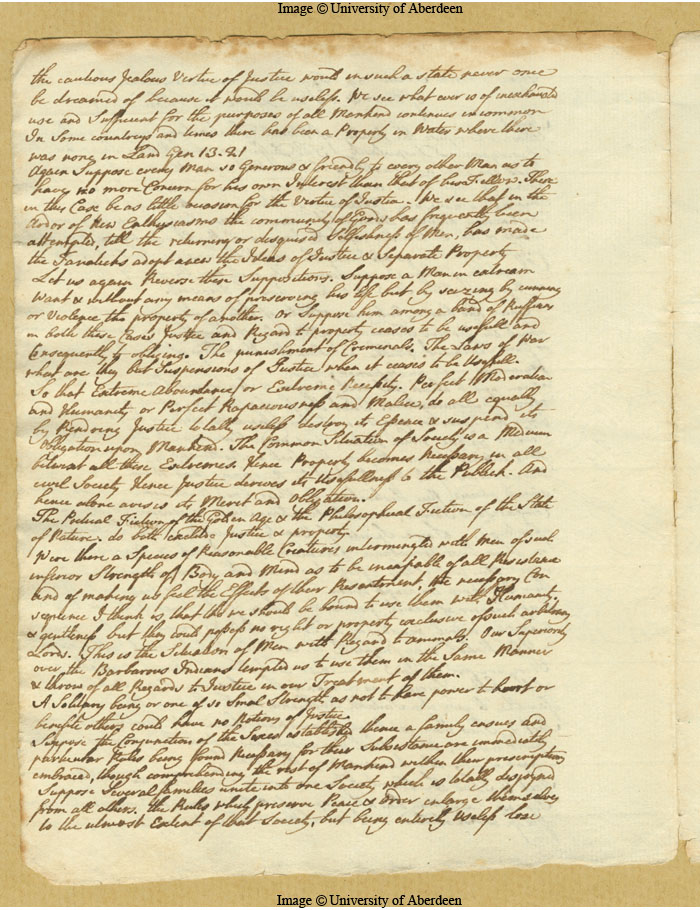 Image © University of Aberdeen
the cautious Jealous Virtue of Justice would in such a state never once
be dreamed of because it would be useless. We see what ever is of inexhausted
use and Sufficient for the purposes of all Mankend continues in common
In Some countreys and times there has been a Property in Water where there
was none in Land Gen 13. 21
Again Suppose every Man so Generous & friendly to every other Man as to
have no more Concern for his own Interest than that of his Fellow. There
in this Case be as little occasion for the Virtue of Justice. We see that in the
Ardor of New Enthusiasms the community of Goods has frequently been
attempted, till the returning or disguised Selfishness of Men, has made
the Fanaticks adopt anew the Ideas of Justice & Separate Property
Let us again Reverse these Suppositions. Suppose a Man in extream
Want & without any means of preserving his life but by seizing by cunning
or Violence the property of another. Or Suppose him among a band of Ruffians
in both these Cases Justice and Regard to property ceases to be usefull and
Consequently obliging. The punishment of Criminals. The Laws of War
what are they but Suspensions of Justice when it ceases to be Usefull.
So that Extreme Aboundance or Extreme Necessity. Perfect Moderation
and Humanity or Perfect Rapaciousness and Malice, do all equally
by Rendring Justice totally useless destroy its Essence & suspend its
Obligation upon Mankind. The Common Situation of Society is a Medium
betwixt all these Extremes. Hence Property becomes Necessary in all
civil Society Hence Justice derives its Usefullness to the Publick. And
hence alone arises its Merit and Obligation.
The Poetical Fiction of the Golden Age & the Philosophical Fiction of the State
of Nature. do both exclude Justice & property.
Were there a Species of Reasonable Creatures intermingled with Men of such
inferior Strength of Body and Mind as to be incapable of all Resistance
and of making us feel the Effects of their Resentment, the necessary Con
sequence I think is, that we should be bound to use them with Humanity,
& gentleness but they could possess no right or property exclusive of such arbitrary
Lords. This is the Situation of Men with Regard to animals. Our Superiority
over the Barbarous Indians tempted us to use them in the Same Manner
& throw of all Regards to Justice in our Treatment of them.
A Solitary being or one of so Smal Strength as not to have power to hoort or
benefite others could have no Notions of Justice
Suppose the Conjunction of the Sexes established thence a family ensues and
particular Rules being found Necessary for their Subsistance are immediatly
embraced, though comprehending the rest of Mankind within their prescriptions
Suppose Several families unite into one Society which is totally disjoynd
from all others. the Rules which preserve Peace & order enlarge themselves
to the utmost Extent of that Society, but being entirely Useless lose
Image © University of Aberdeen